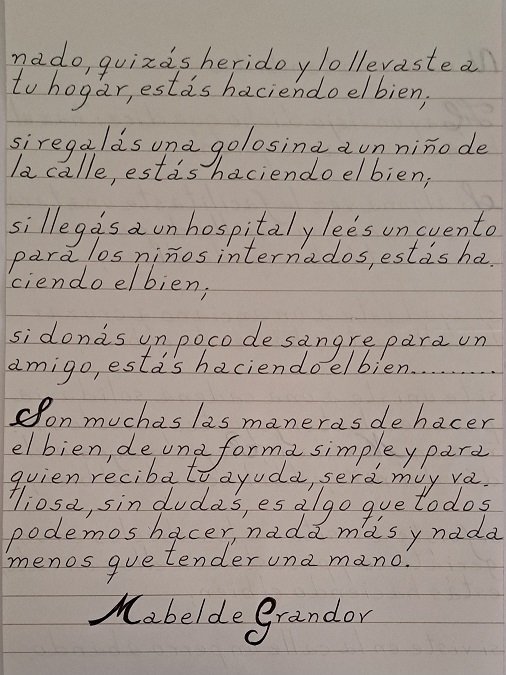 nado, quizás herido y lo llevaste a
tu hogar, estás haciendo el bien;
si regalás una golosina a un niño de
la calle, estás haciendo el bien;
si llegás a un hospital y leés un cuento
para los niños internados, estás ha.
ciendo el bien;
si donás un poco de sangre para un
amigo, estás haciendo el bien..........
Son muchas las maneras de hacer
el bien, de una forma simple y para
quien reciba tu ayuda, será muy va.
liosa, sin dudas, es algo que todos
podemos hacer, nada más y nada
menos que tender una mano.
Mabel de Grandov